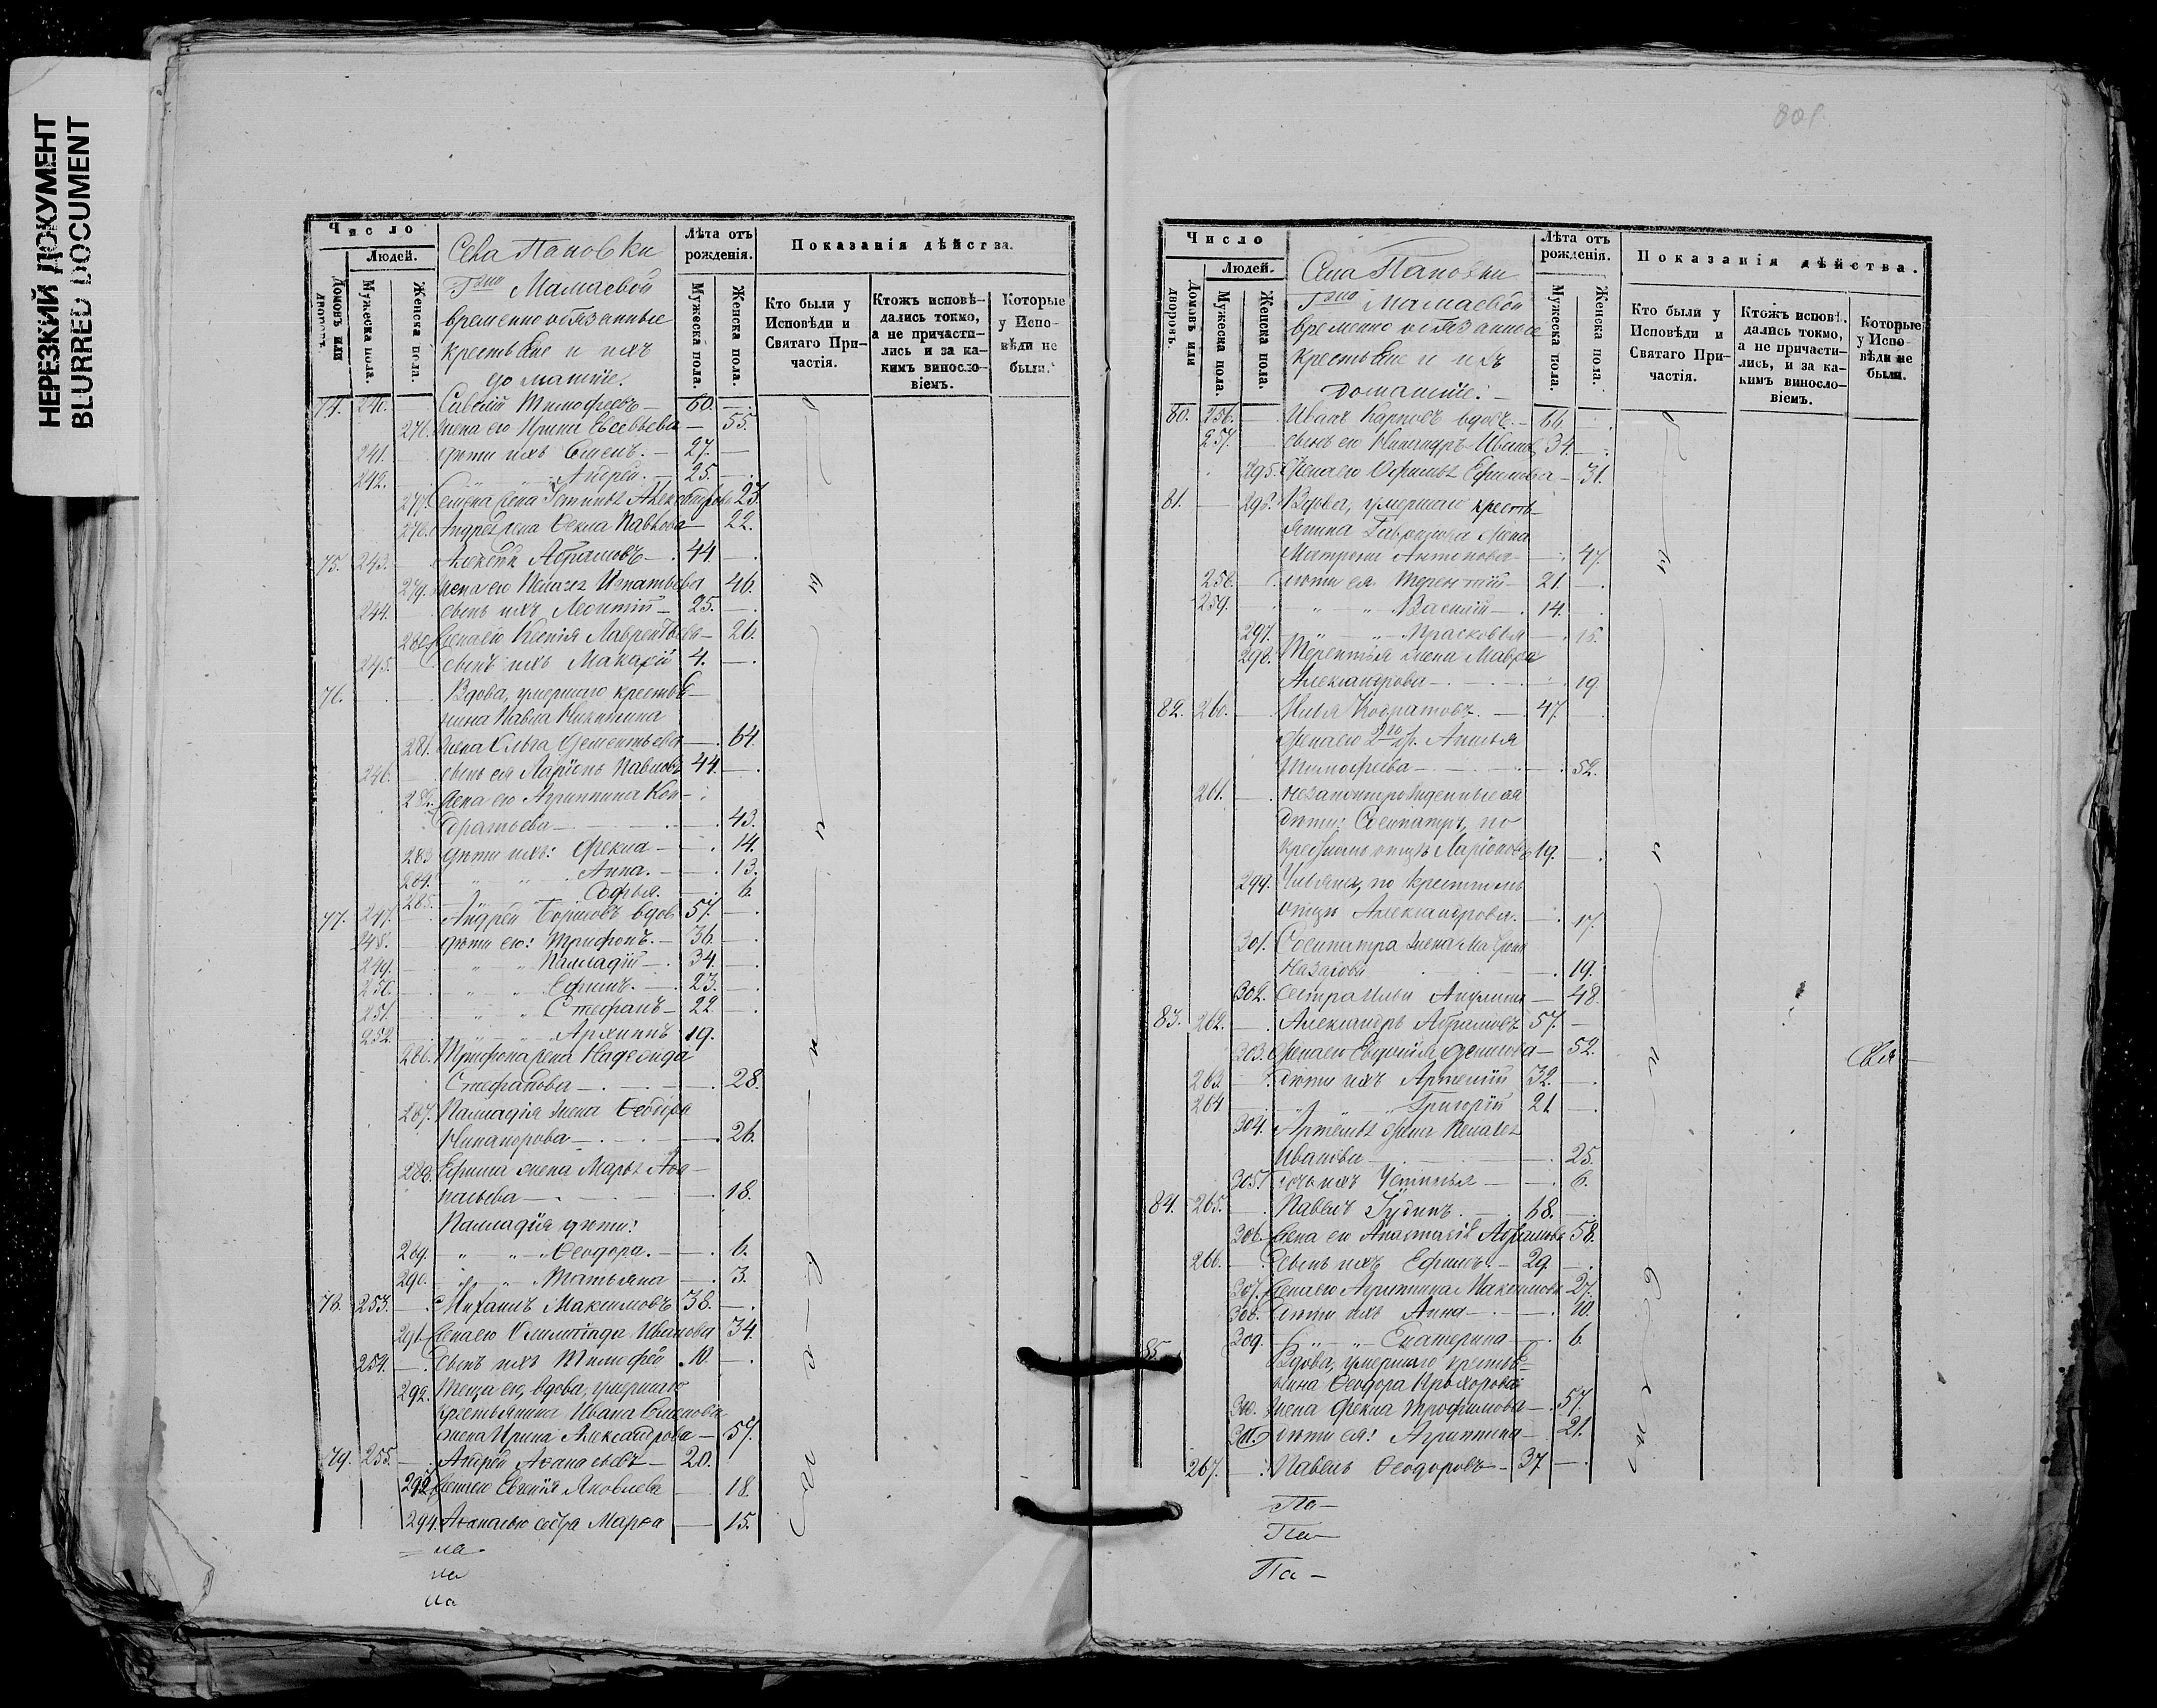 НЕРЕЗКИЙ ДОКУМЕНТ
BLURRED DOCUMENT
Число
Людей.
Домовъ или дворовъ.
Мужеска пола.
Женска пола.
Села Пановки
Г-жи Мамаевой
временнообязанные
крестьяне и ихъ
домашніе.
Лѣта отъ рожденія.
Мужеска пола.
Женска пола.
Показанія дѣйства.
Кто были у Исповѣди и Святаго Причастія.
Ктожъ исповѣдались токмо, а не причастились и за какимъ винословіемъ.
Которые у Исповѣди не были.
74. 240. Тимофеевъ — 60. —
276. жена его Ирина Евсевьева — 55.
241. дѣти ихъ Семенъ. — 27. —
242. „ „ Андрей. — 25. —
277. Семена жена 23.
278. Андрея жена Ѳекла Павлова — 22.
75. 243. Алексѣй Абрамовъ — 44. —
279. жена его Пелагея Игнатьева 46.
244. сынъ ихъ Леонтій — 25. —
280. жена его Ксенія Лаврентьева — 26.
245. сынъ ихъ Макарій 4. —
76. Вдова, умершаго крестья-
нина Павла Никитина
281. жена Ольга Дементьева — 64.
246. сынъ ея Ларіонъ Павловъ 44. —
282. жена его Агриппина Кон-
дратьева — 43.
283. дѣти ихъ: Фекла — 14.
284. „ „ Анна. — 13.
285. „ „ Софья. — 6.
77. 247. Андрей Борисовъ вдов. 57. —
248. дѣти его: Трифонъ. — 36. —
249. „ „ Палладій — 34. —
250. „ „ Ефимъ. — 23. —
251. „ „ Стефанъ — 22. —
252. „ „ Архиппъ 19.
286. Трифона жена Надежда
Стефанова — 28.
287. Палладія жена Ѳеодора
Никандрова — 26.
288. Ефима жена Марья Аѳа-
насьева — 18.
Палладія дѣти:
289. „ „ Ѳеодора. — 6.
290. „ „ Татьяна — 3.
78. 253. Михаилъ Максимовъ 38. —
291. жена его Олимпіада Иванова 34.
254. сынъ ихъ Тимофей 10. —
292. теща его, вдова, умершаго
крестьянина Ивана Семенова
жена Ирина Александрова — 57.
79. 255. Андрей Аѳанасьевъ — 20.
293. жена его Евгенія Яковлева 18.
294. Аѳанасьева Марѳа — 15.
на
на
на
801.
Число
Людей.
Домовъ или дворовъ.
Мужеска пола.
Женска пола.
Села Пановки
Г-жи Мамаевой
временнообязанные
крестьяне и ихъ
домашніе:
Лѣта отъ рожденія.
Мужеска пола.
Женска пола.
Показанія дѣйства.
Кто были у Исповѣди и Святаго Причастія.
Ктожъ исповѣдались токмо, а не причастились, и за какимъ винословіемъ.
Которые у Исповѣди не были.
80. 256. Иванъ Карповъ вдовъ. — 66.
257. сынъ его Никандръ Ивановъ 34. —
295. жена его Ефимова — 31.
81. — 296. Вдова, умершаго кресть-
янина жена
Матрона Антонова — 47.
258. дѣти ея Терентій — 21. —
259. „ „ Василій — 14.
297. „ „ Прасковья — 16.
298. Терентья жена Мавра
Александрова — 19.
82. 260. Илья Кодратовъ. — 47. —
жена его 2го бр. Анисья
Тимофеева — 52.
261. незаконнорожденные ея
дѣти: Сосипатръ, по
крестному отцу Ларіоновъ 19. —
299. Ульяна, по крестному
отцу Александрова. — 17.
301. Сосипатра жена Матрона
Назарова 19.
302. Сестра Ильи Акулина — 48.
83. 262. Александръ Абрамовъ 57. —
303. жена его Евдокія Денисова — 52.
263. дѣти ихъ Артемій 32. —
264. „ „ Григорій 21. —
304. Артемья жена Пелагея
Иванова — 25.
305. дочь ихъ Устинья — 6.
84. 265. Павелъ Іудинъ. — 68. —
306. жена его Анастасія Абрамова 58.
266. сынъ ихъ Ефимъ. — 29. —
307. жена его Агриппина Максимова 27.
308. дѣти ихъ Анна — 10.
309. „ „ Екатерина — 6.
85. Вдова, умершаго крестья-
нина Ѳеодора Прохорова
310. жена Фекла Трофимова — 57.
311. дѣти ея: Агриппина — 21.
267. Павелъ Ѳеодоровъ — 37. —
По —
Па —
Па —